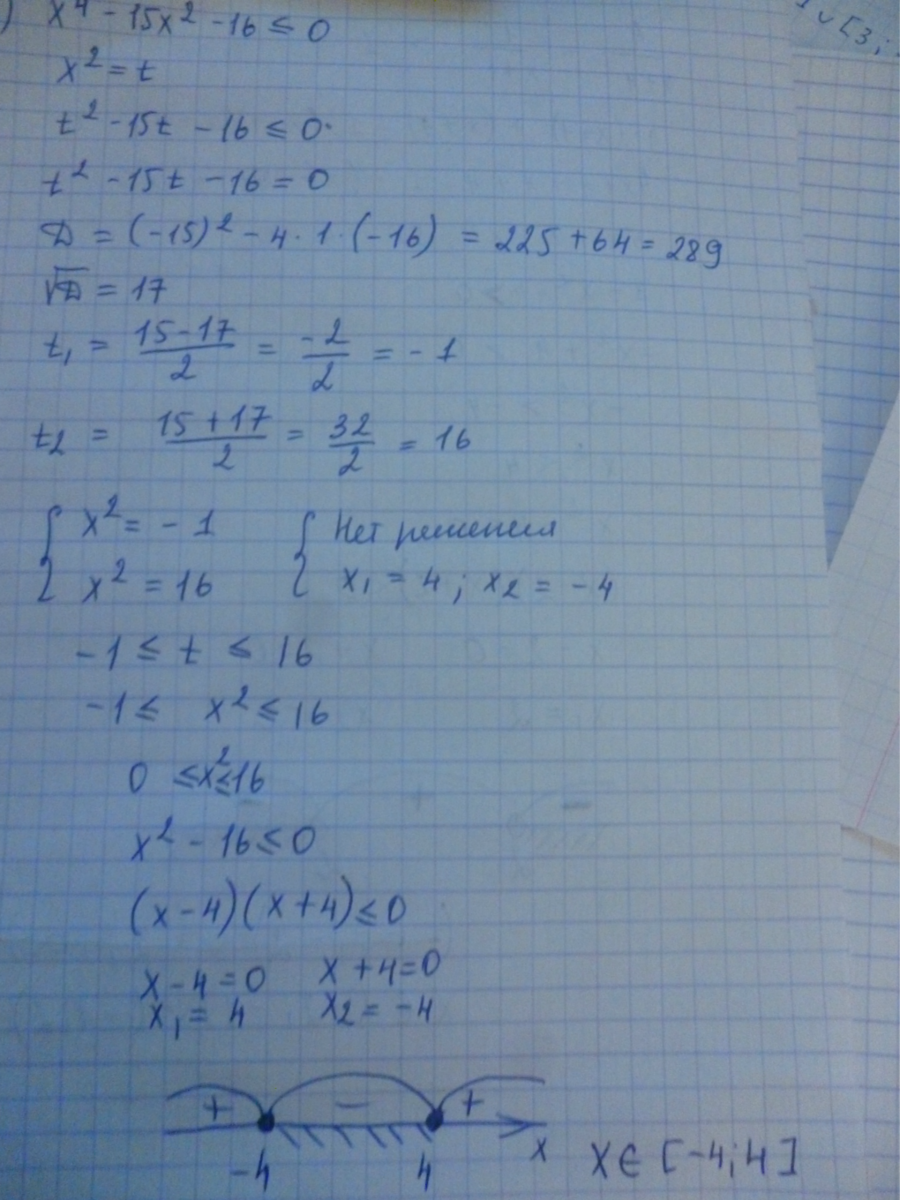 ) x⁴ - 15x² - 16 ≤ 0
x² = t
t² - 15t - 16 ≤ 0
t² - 15t - 16 = 0
D = (-15)² - 4 · 1 · (-16) = 225 + 64 = 289
√D = 17
t₁ = (15-17)/2 = -2/2 = -1
t₂ = (15+17)/2 = 32/2 = 16
{ x² = -1 { Нет решения
{ x² = 16 { x₁ = 4 ; x₂ = -4
-1 ≤ t ≤ 16
-1 ≤ x² ≤ 16
0 ≤ x² ≤ 16
x² - 16 ≤ 0
(x-4)(x+4) ≤ 0
x - 4 = 0 x + 4 = 0
x₁ = 4 x₂ = -4
+ − +
-4 4 x x ∈ [-4; 4]
∪ [3;